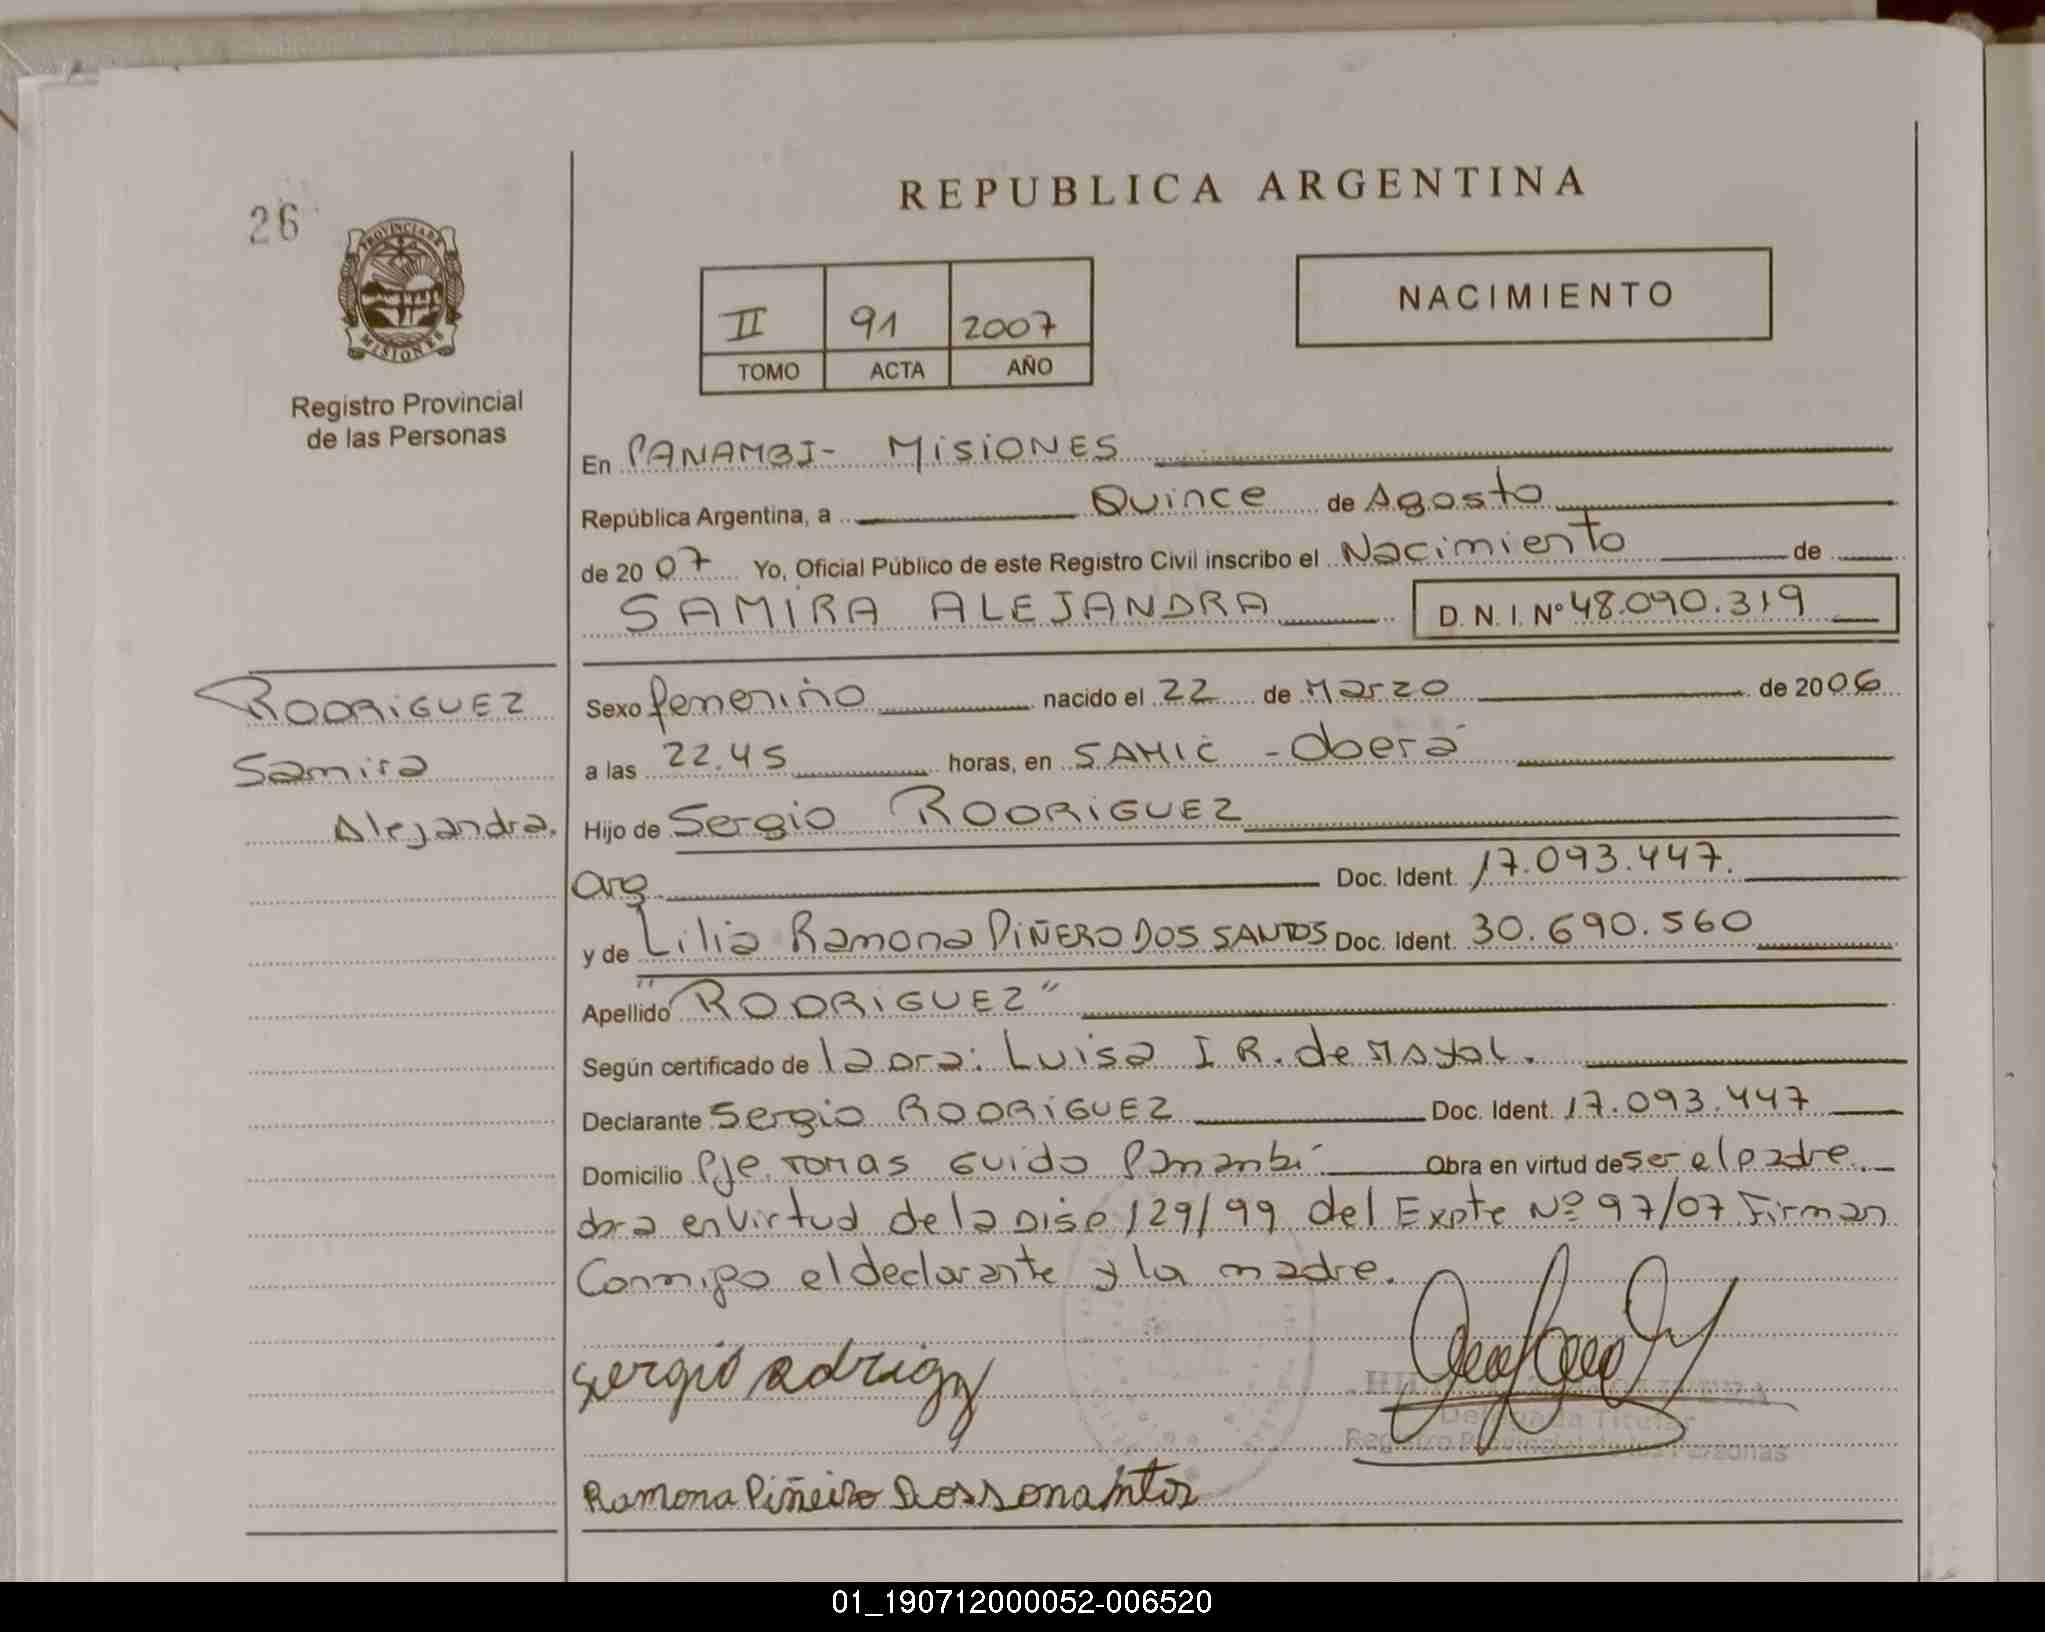 26
PROVINCIA DE
MISIONES
Registro Provincial
de las Personas
REPUBLICA ARGENTINA
II 91 2007
TOMO ACTA AÑO
NACIMIENTO
En PANAMBI- MISIONES
República Argentina, a Quince de Agosto
de 20 07 Yo, Oficial Público de este Registro Civil inscribo el Nacimiento de
SAMIRA ALEJANDRA D. N. I. Nº 48.090.319
RODRIGUEZ
Samira
Alejandra.
Sexo femenino nacido el 22 de Marzo de 20 06
a las 22.45 horas, en SAMIC - Oberá
Hijo de Sergio RODRIGUEZ
arg Doc. Ident. 17.093.447.
y de Lilia Ramona PIÑERO DOS SANTOS Doc. Ident. 30.690.560
Apellido "RODRIGUEZ"
Según certificado de la Dra: Luisa I R. de
Declarante Sergio RODRIGUEZ Doc. Ident. 17.093.447
Domicilio Pje. Tomas Guido Panambí Obra en virtud de ser el padre.
obra en virtud de la Disp 129/99 del Expte Nº 97/07 Firman
Conmigo el declarante y la madre.
sergio
Delegada Titular
Registro Provincial de las Personas
Ramona Piñeiro
01_190712000052-006520